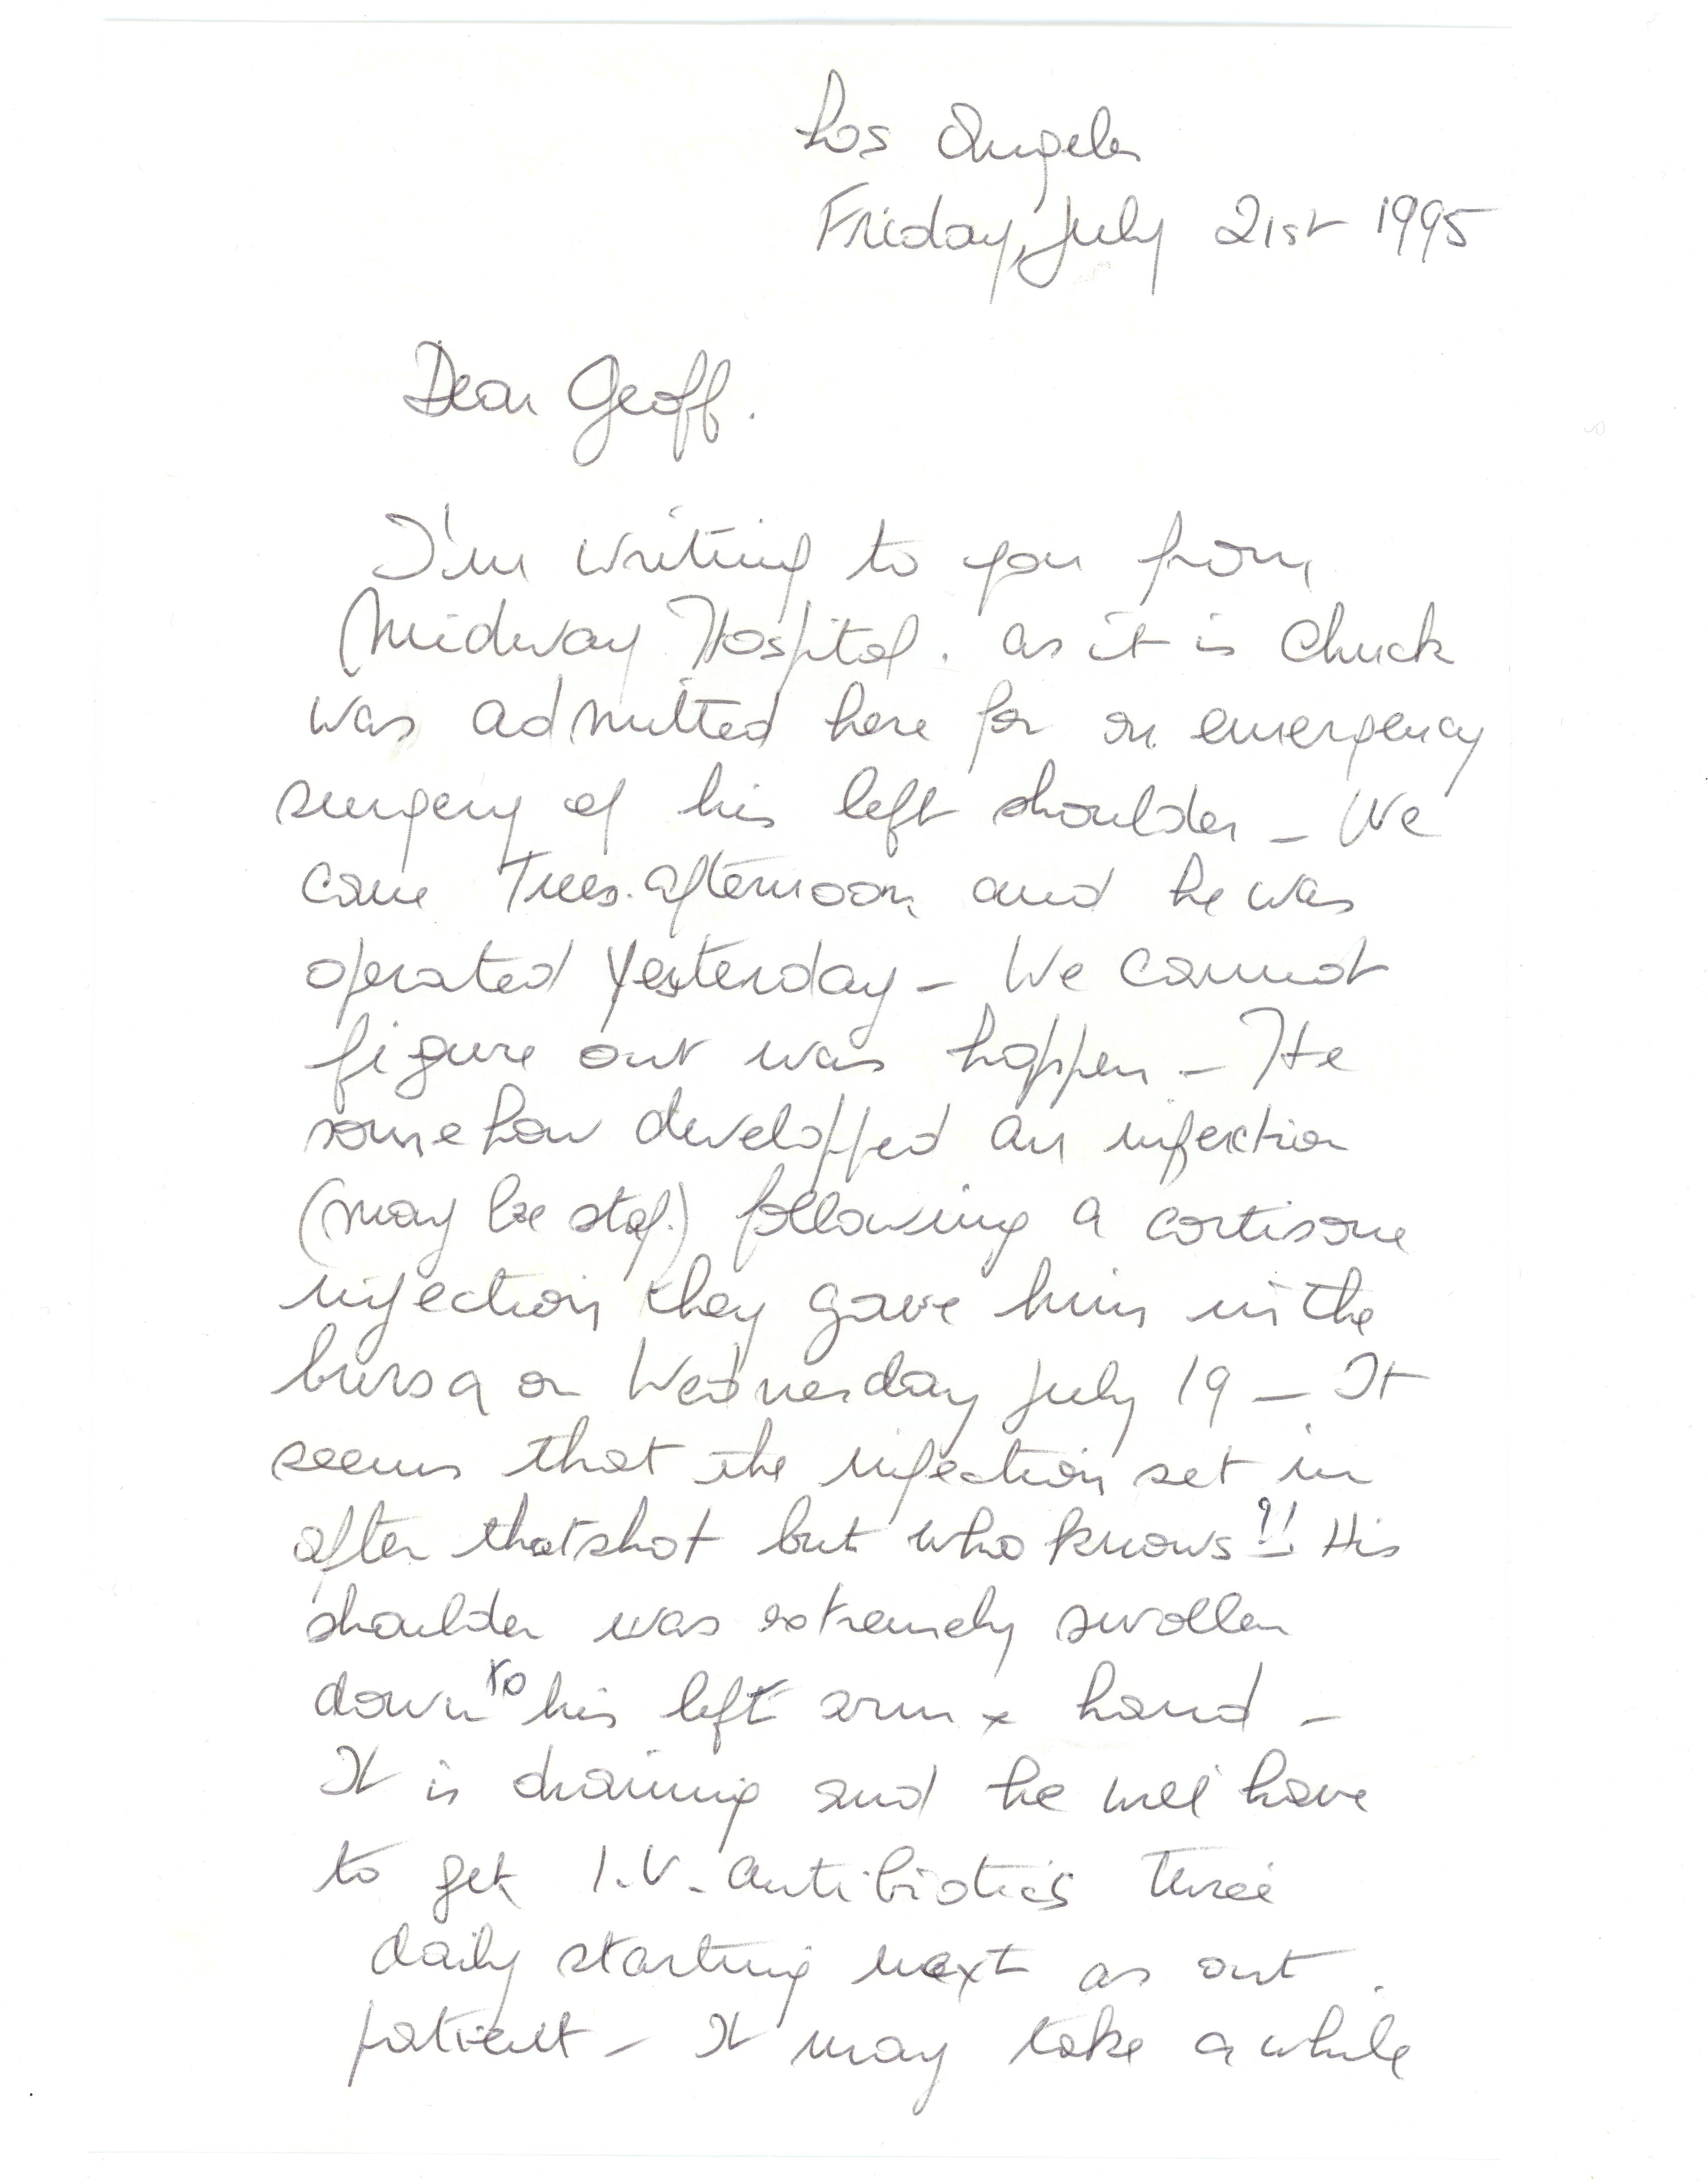 Los Angeles
Friday, July 21st 1995
Dear Geoff.
I'm writing to you from
Midway Hospital. as it is Chuck
was admitted here for an emergency
surgery of his left shoulder - We
came Tues. afternoon and he was
operated yesterday - We cannot
figure out was happen - He
somehow developped an infection
(may be staf.) following a cortisone
injection they gave him in the
bursa on Wednesday July 19 - It
seems that the infection set in
after that shot but who knows!! His
shoulder was extremely swollen
down to his left arm & hand -
It is draining and he will have
to get I.V. antibiotics twice
daily starting next as out
patient - It may take a while